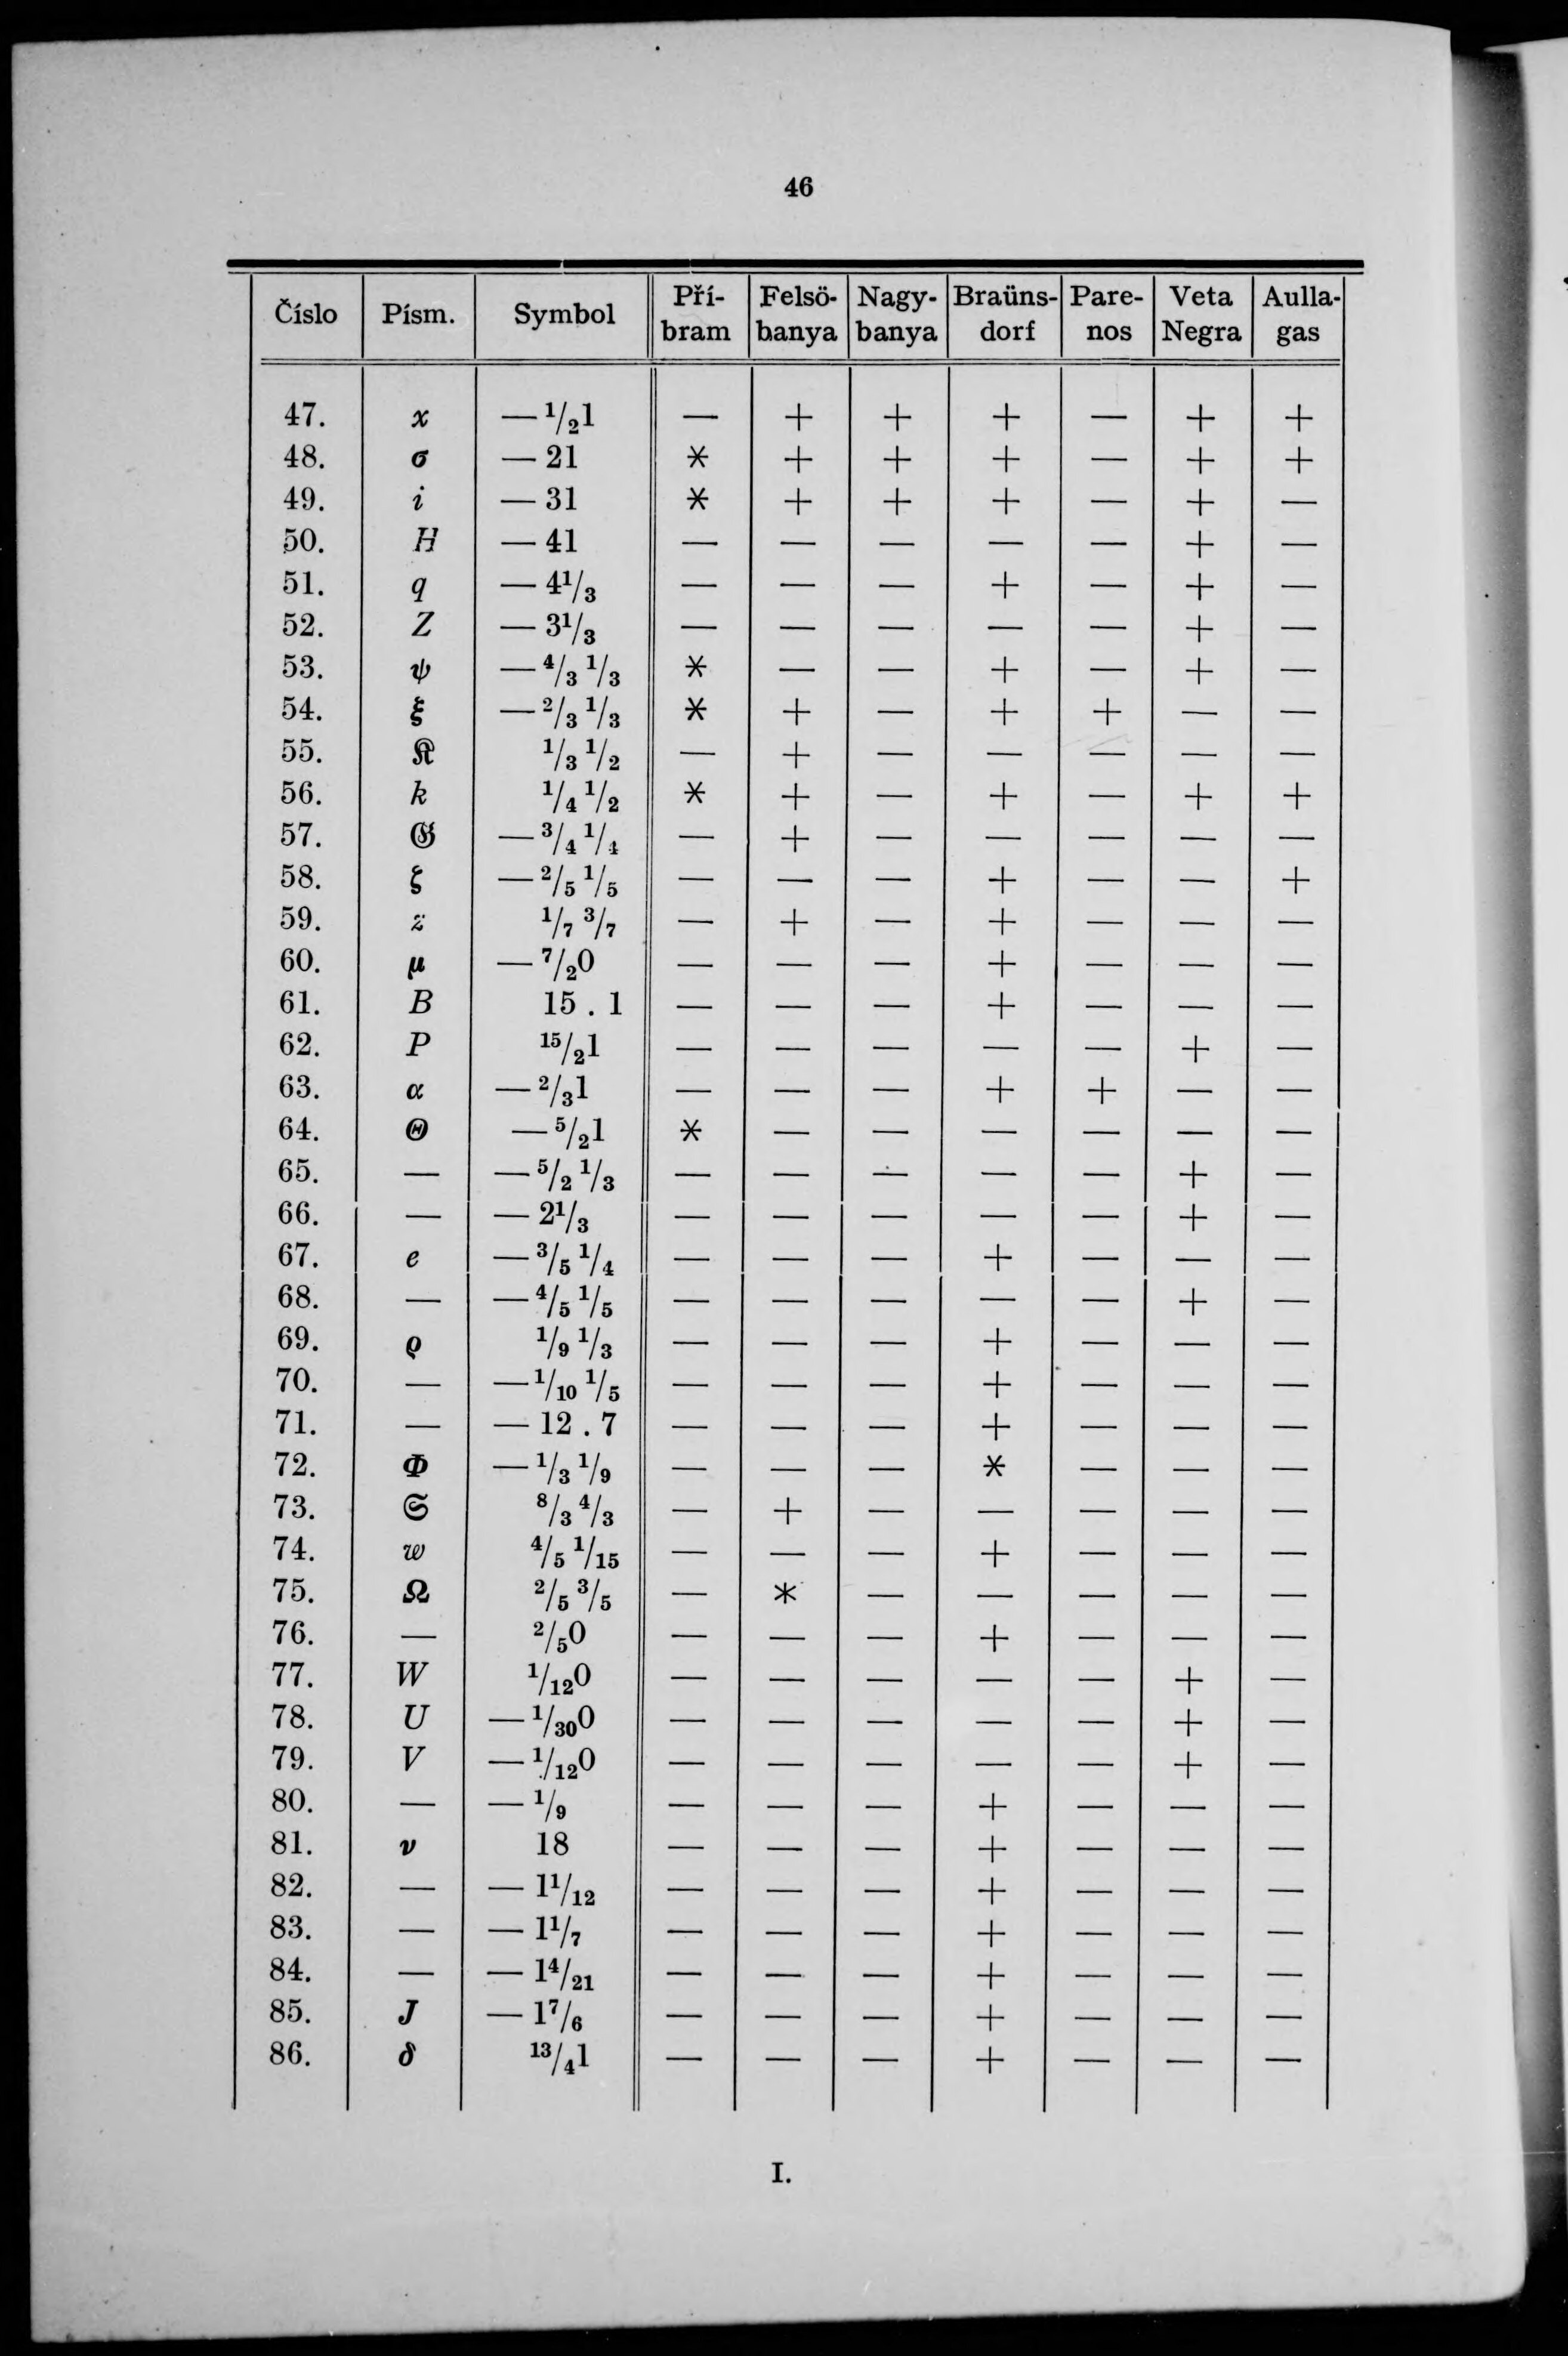 46
Číslo Písm. Symbol Pří-bram Felsö-banya Nagy-banya Braüns-dorf Pare-nos Veta Negra Aulla-gas
47. x — 1/2 1 — + + + — + +
48. σ — 21 * + + + — + +
49. i — 31 * + + + — + —
50. H — 41 — — — — — + —
51. q — 4 1/3 — — — + — + —
52. Z — 3 1/3 — — — — — + —
53. ψ — 4/3 1/3 * — — + — + —
54. ξ — 2/3 1/3 * + — + + — —
55. 𝔎 1/3 1/2 — + — — — — —
56. k 1/4 1/2 * + — + — + +
57. 𝔊 — 3/4 1/4 — + — — — — —
58. ζ — 2/5 1/5 — — — + — — +
59. z 1/7 3/7 — + — + — — —
60. μ — 7/2 0 — — — + — — —
61. B 15 . 1 — — — + — — —
62. P 15/2 1 — — — — — + —
63. α — 2/3 1 — — — + + — —
64. Θ — 5/2 1 * — — — — — —
65. — — 5/2 1/3 — — — — — + —
66. — — 2 1/3 — — — — — + —
67. e — 3/5 1/4 — — — + — — —
68. — — 4/5 1/5 — — — — — + —
69. ϱ 1/9 1/3 — — — + — — —
70. — — 1/10 1/5 — — — + — — —
71. — — 12 . 7 — — — + — — —
72. Φ — 1/3 1/9 — — — * — — —
73. 𝔖 8/3 4/3 — + — — — — —
74. w 4/5 1/15 — — — + — — —
75. Ω 2/5 3/5 — * — — — — —
76. — 2/5 0 — — — + — — —
77. W 1/12 0 — — — — — + —
78. U — 1/30 0 — — — — — + —
79. V — 1/12 0 — — — — — + —
80. — — 1/9 — — — + — — —
81. ν 18 — — — + — — —
82. — — 1 1/12 — — — + — — —
83. — — 1 1/7 — — — + — — —
84. — — 1 4/21 — — — + — — —
85. J — 1 7/6 — — — + — — —
86. δ 13/4 1 — — — + — — —
I.